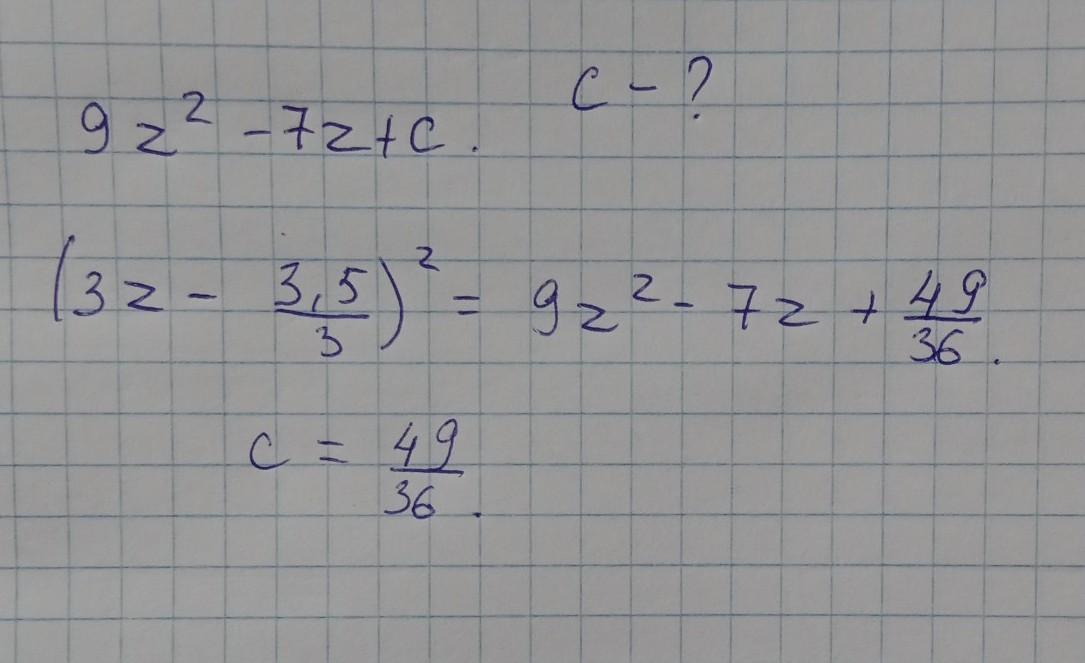 9z² - 7z + c. c - ?
(3z - 3,5/3)² = 9z² - 7z + 49/36.
c = 49/36.